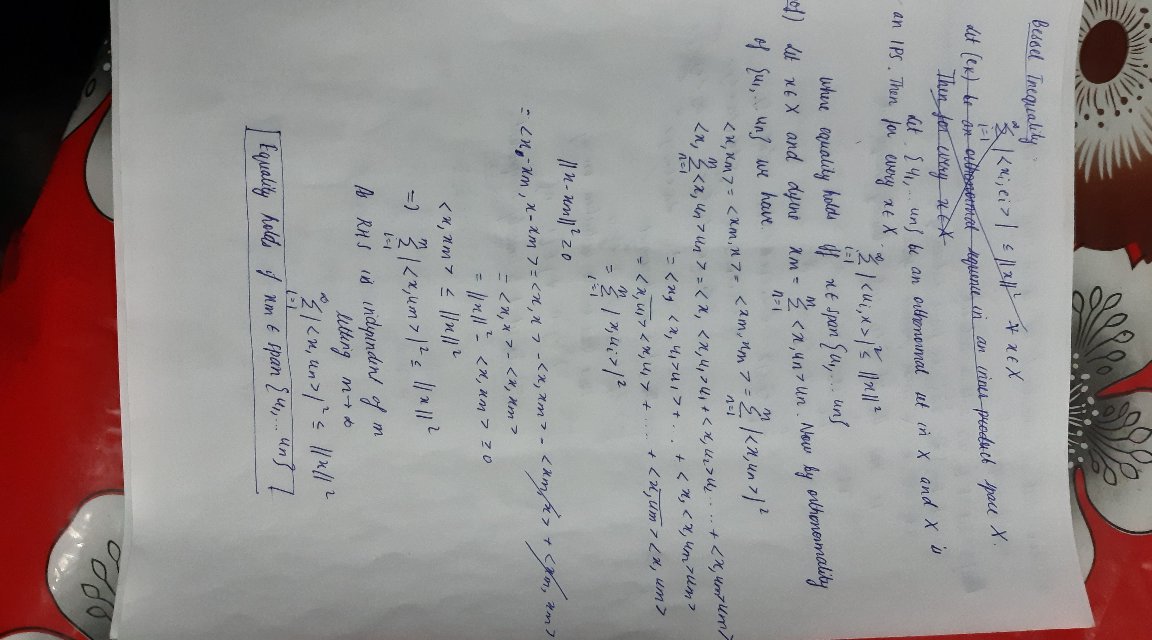 Bessel Inequality
∞∑i=1 |<xi, ei>| ≤ ||x||² ∀ x∈X
Let (ek) be an orthonormal sequence in an inner product space X.
Then for every x∈X
Let {u1, ... un} be an orthonormal set in X and X is
an IPS. Then for every x∈X
∞∑i=1 |<ui, x>|² ≤ ||x||²
where equality holds iff x∈ span {u1, ... un}
of) Let x∈X and define xm = m∑n=1 <x, un> un. Now by orthonormality
of {u1, ... un} we have
<x, xm> = <xm, x> = <xm, xm> = m∑n=1 |<x, un>|²
<x, m∑n=1 <x, un> un> = <x, <x, u1> u1 + <x, u2> u2 .... + <x, um> um>
= <x, <x, u1> u1> + ... + <x, <x, um> um>
= <x̅,̅ ̅u̅1̅> <x, u1> + .... + <x̅,̅ ̅u̅m̅> <x, um>
= m∑i=1 |x, ui>|²
||x - xm||² ≥ 0
= <x - xm, x - xm> = <x, x> - <x, xm> - <xm, x> + <xm, xm>
= <x, x> - <x, xm>
= ||x||² - <x, xm> ≥ 0
<x, xm> ≤ ||x||²
=> m∑i=1 |<x, um>|² ≤ ||x||²
As RHS is independent of m
letting m → ∞
∞∑i=1 |<x, un>|² ≤ ||x||²
Equality holds if xm ∈ span {u1, ... un}